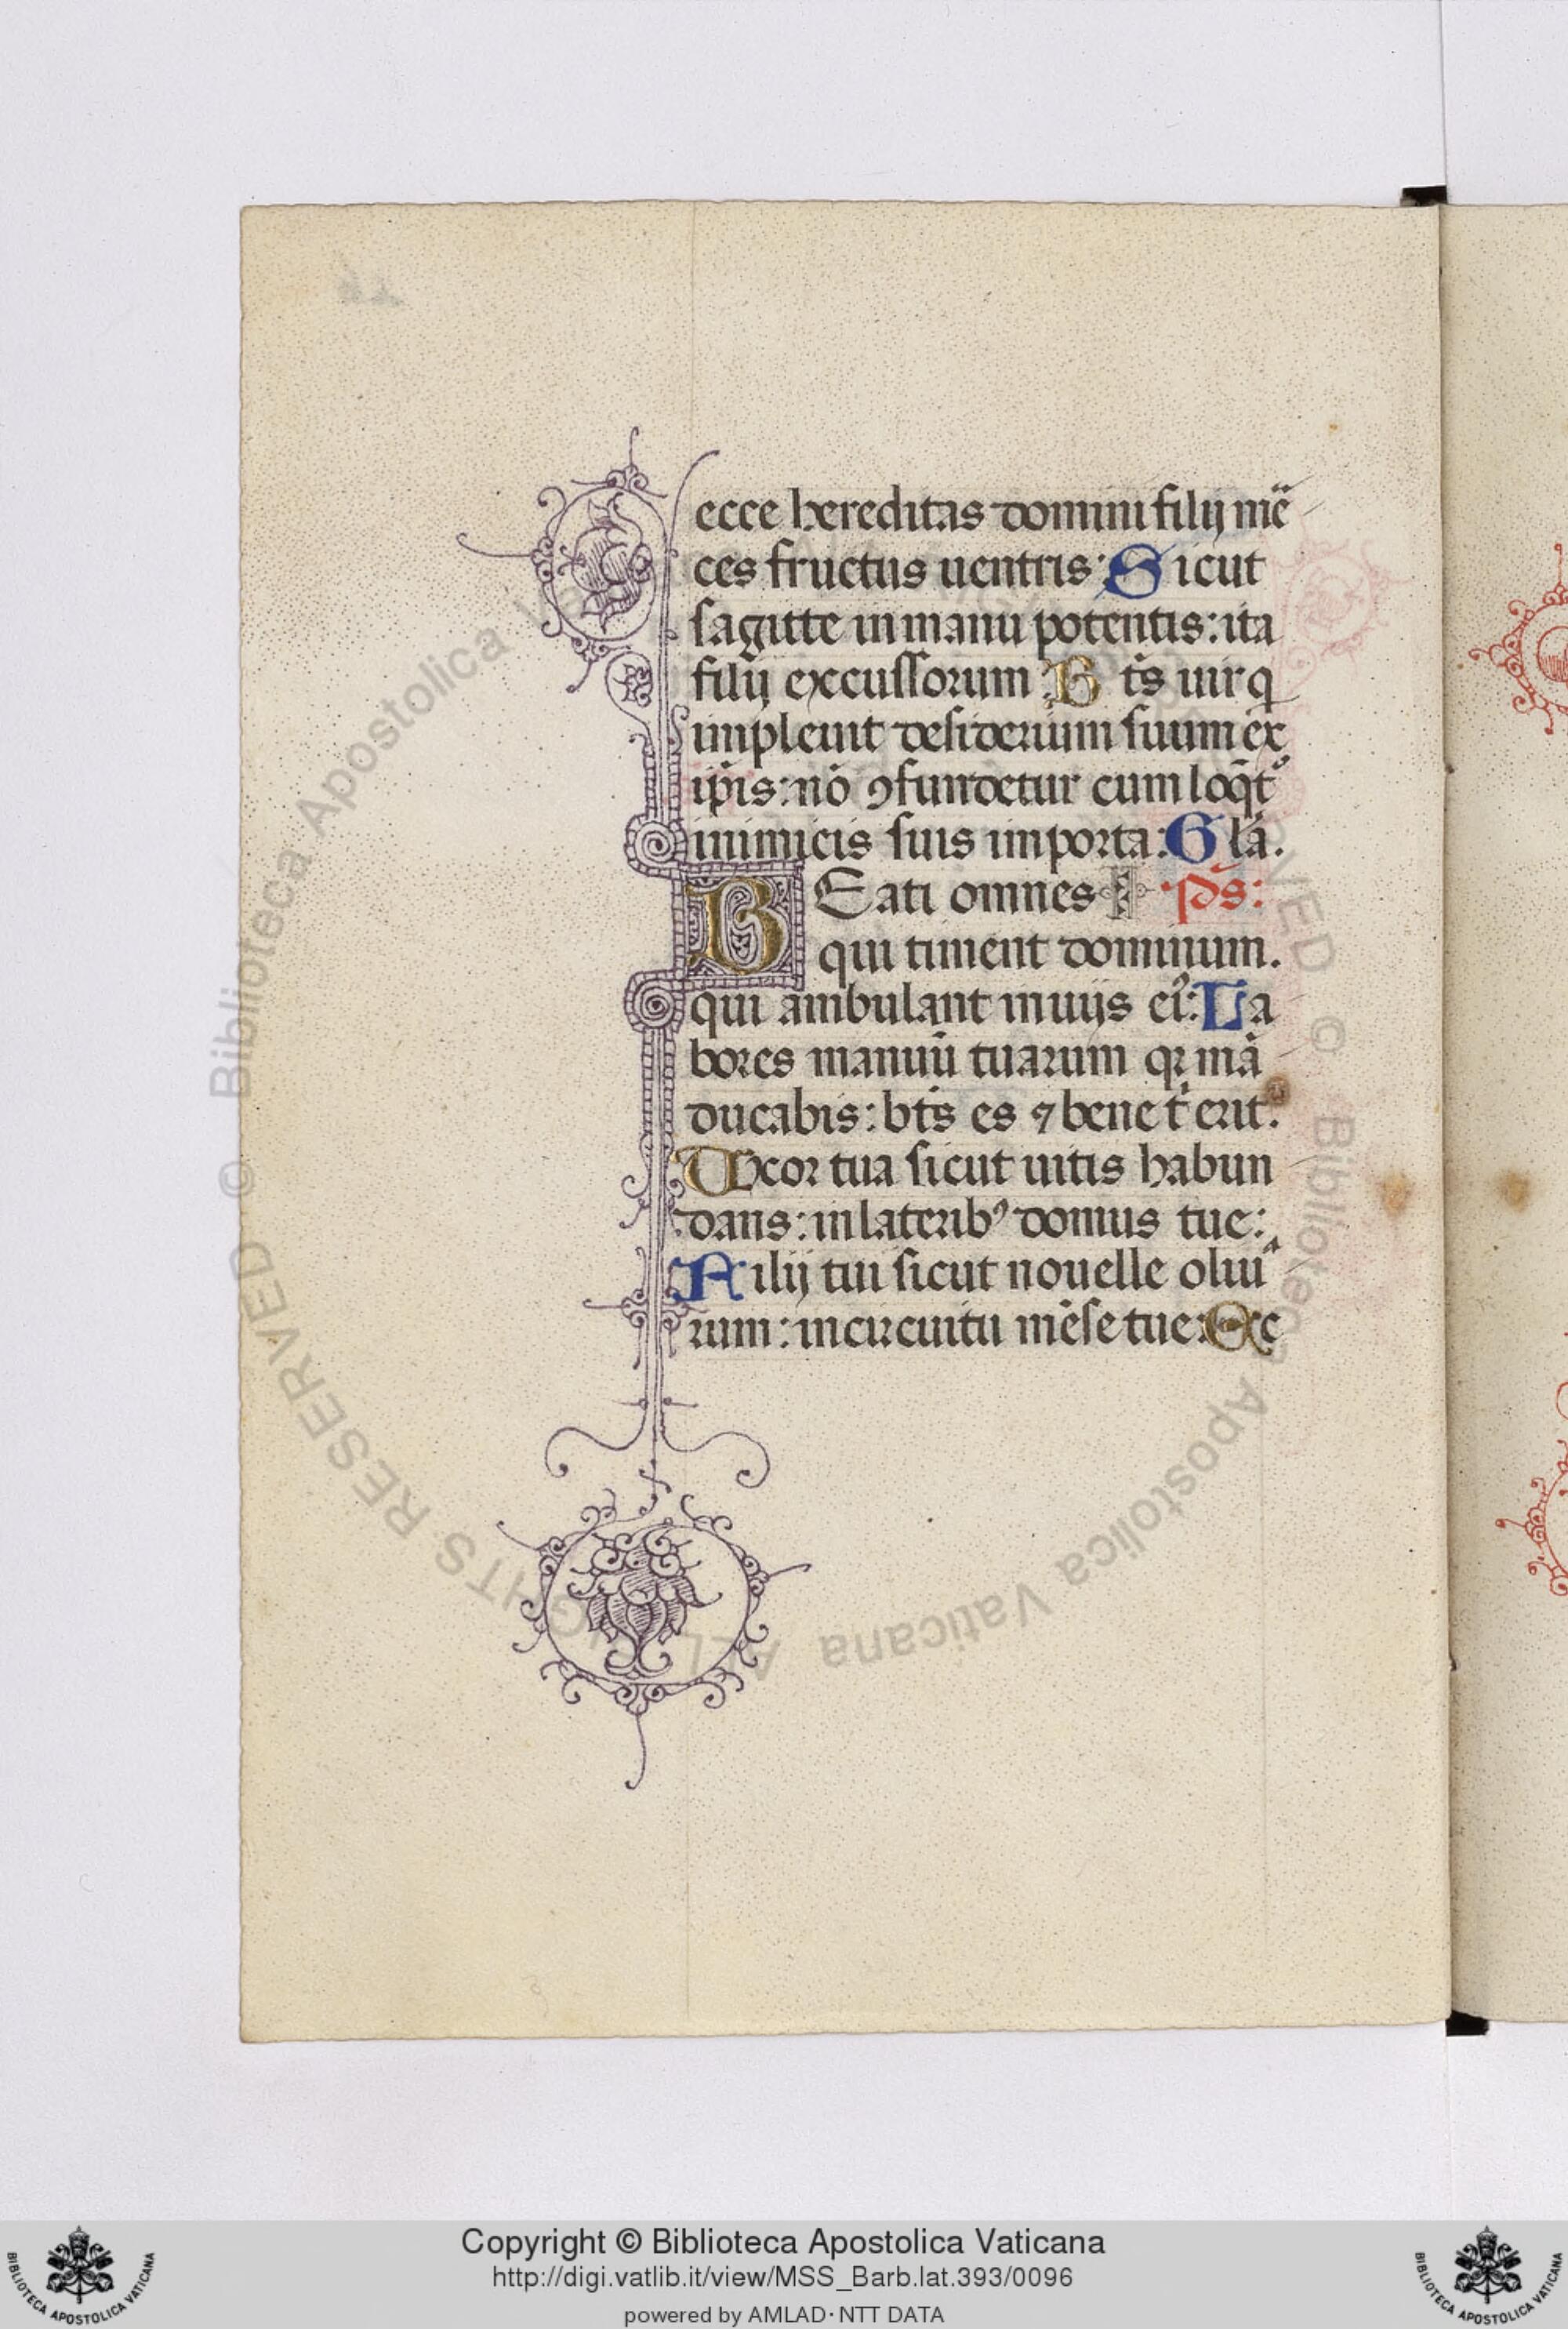 ecce hereditas domini filij mē
ces fructus uentris: Sicut
sagitte in manu potentis: ita
filij excussorum: B tꝰs uir q
impleuit desiderium suum ex
ip̄is: nō ꝯfundetur cum loq̄t᷑
inimicis suis in porta: G lā.
BEati omnes ps:
qui timent dominum.
qui ambulant in uijs ei᷒: La
bores manuū tuarum qꝛ mā
ducabis: bt̄s es ⁊ bene t̄ erit.
Uxor tua sicut uitis habun
dans: in laterib᷒ domus tue:
Filij tui sicut nouelle oliuᵃ
rum: in circuitu mēse tue: Ec
© Biblioteca Apostolica Vaticana ALL RIGHTS RESERVED
© Biblioteca Apostolica Vaticana
Copyright © Biblioteca Apostolica Vaticana
http://digi.vatlib.it/view/MSS_Barb.lat.393/0096
powered by AMLAD·NTT DATA
BIBLIOTECA APOSTOLICA VATICANA
BIBLIOTECA APOSTOLICA VATICANA